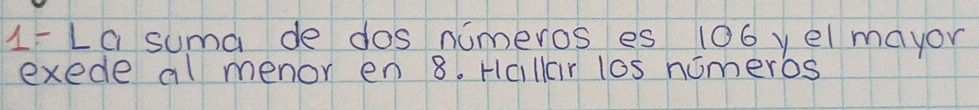 1- La suma de dos números es 106 y el mayor
exede al menor en 8. Hallar los números